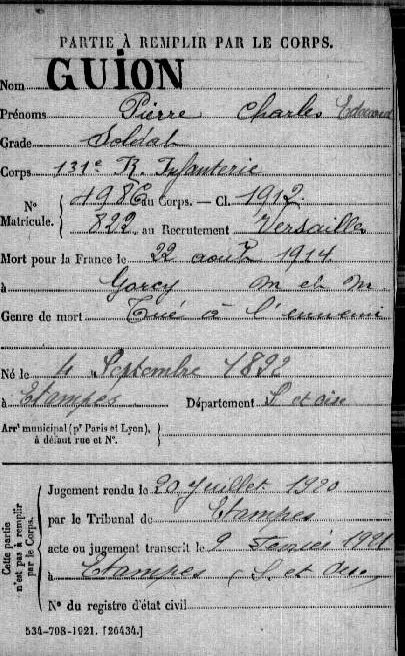 PARTIE À REMPLIR PAR LE CORPS.
Nom GUION
Prénoms Pierre Charles Edouard
Grade Soldat
Corps 131e R. Infanterie
N° Matricule. { 4986 au Corps. — Cl. 1912
822 au Recrutement Versailles
Mort pour la France le 22 août 1914
à Gorcy M et M
Genre de mort Tué à l'ennemi
Né le 4 Septembre 1892
à Etampes Département S et oise
Arrt municipal (pr Paris et Lyon), à défaut rue et N°. {
Cette partie n'est pas à remplir par le Corps.
Jugement rendu le 20 Juillet 1920
par le Tribunal de Etampes
acte ou jugement transcrit le 9 1921
à Etampes (S. et Oise)
N° du registre d'état civil
534-708-1921. [26434.]